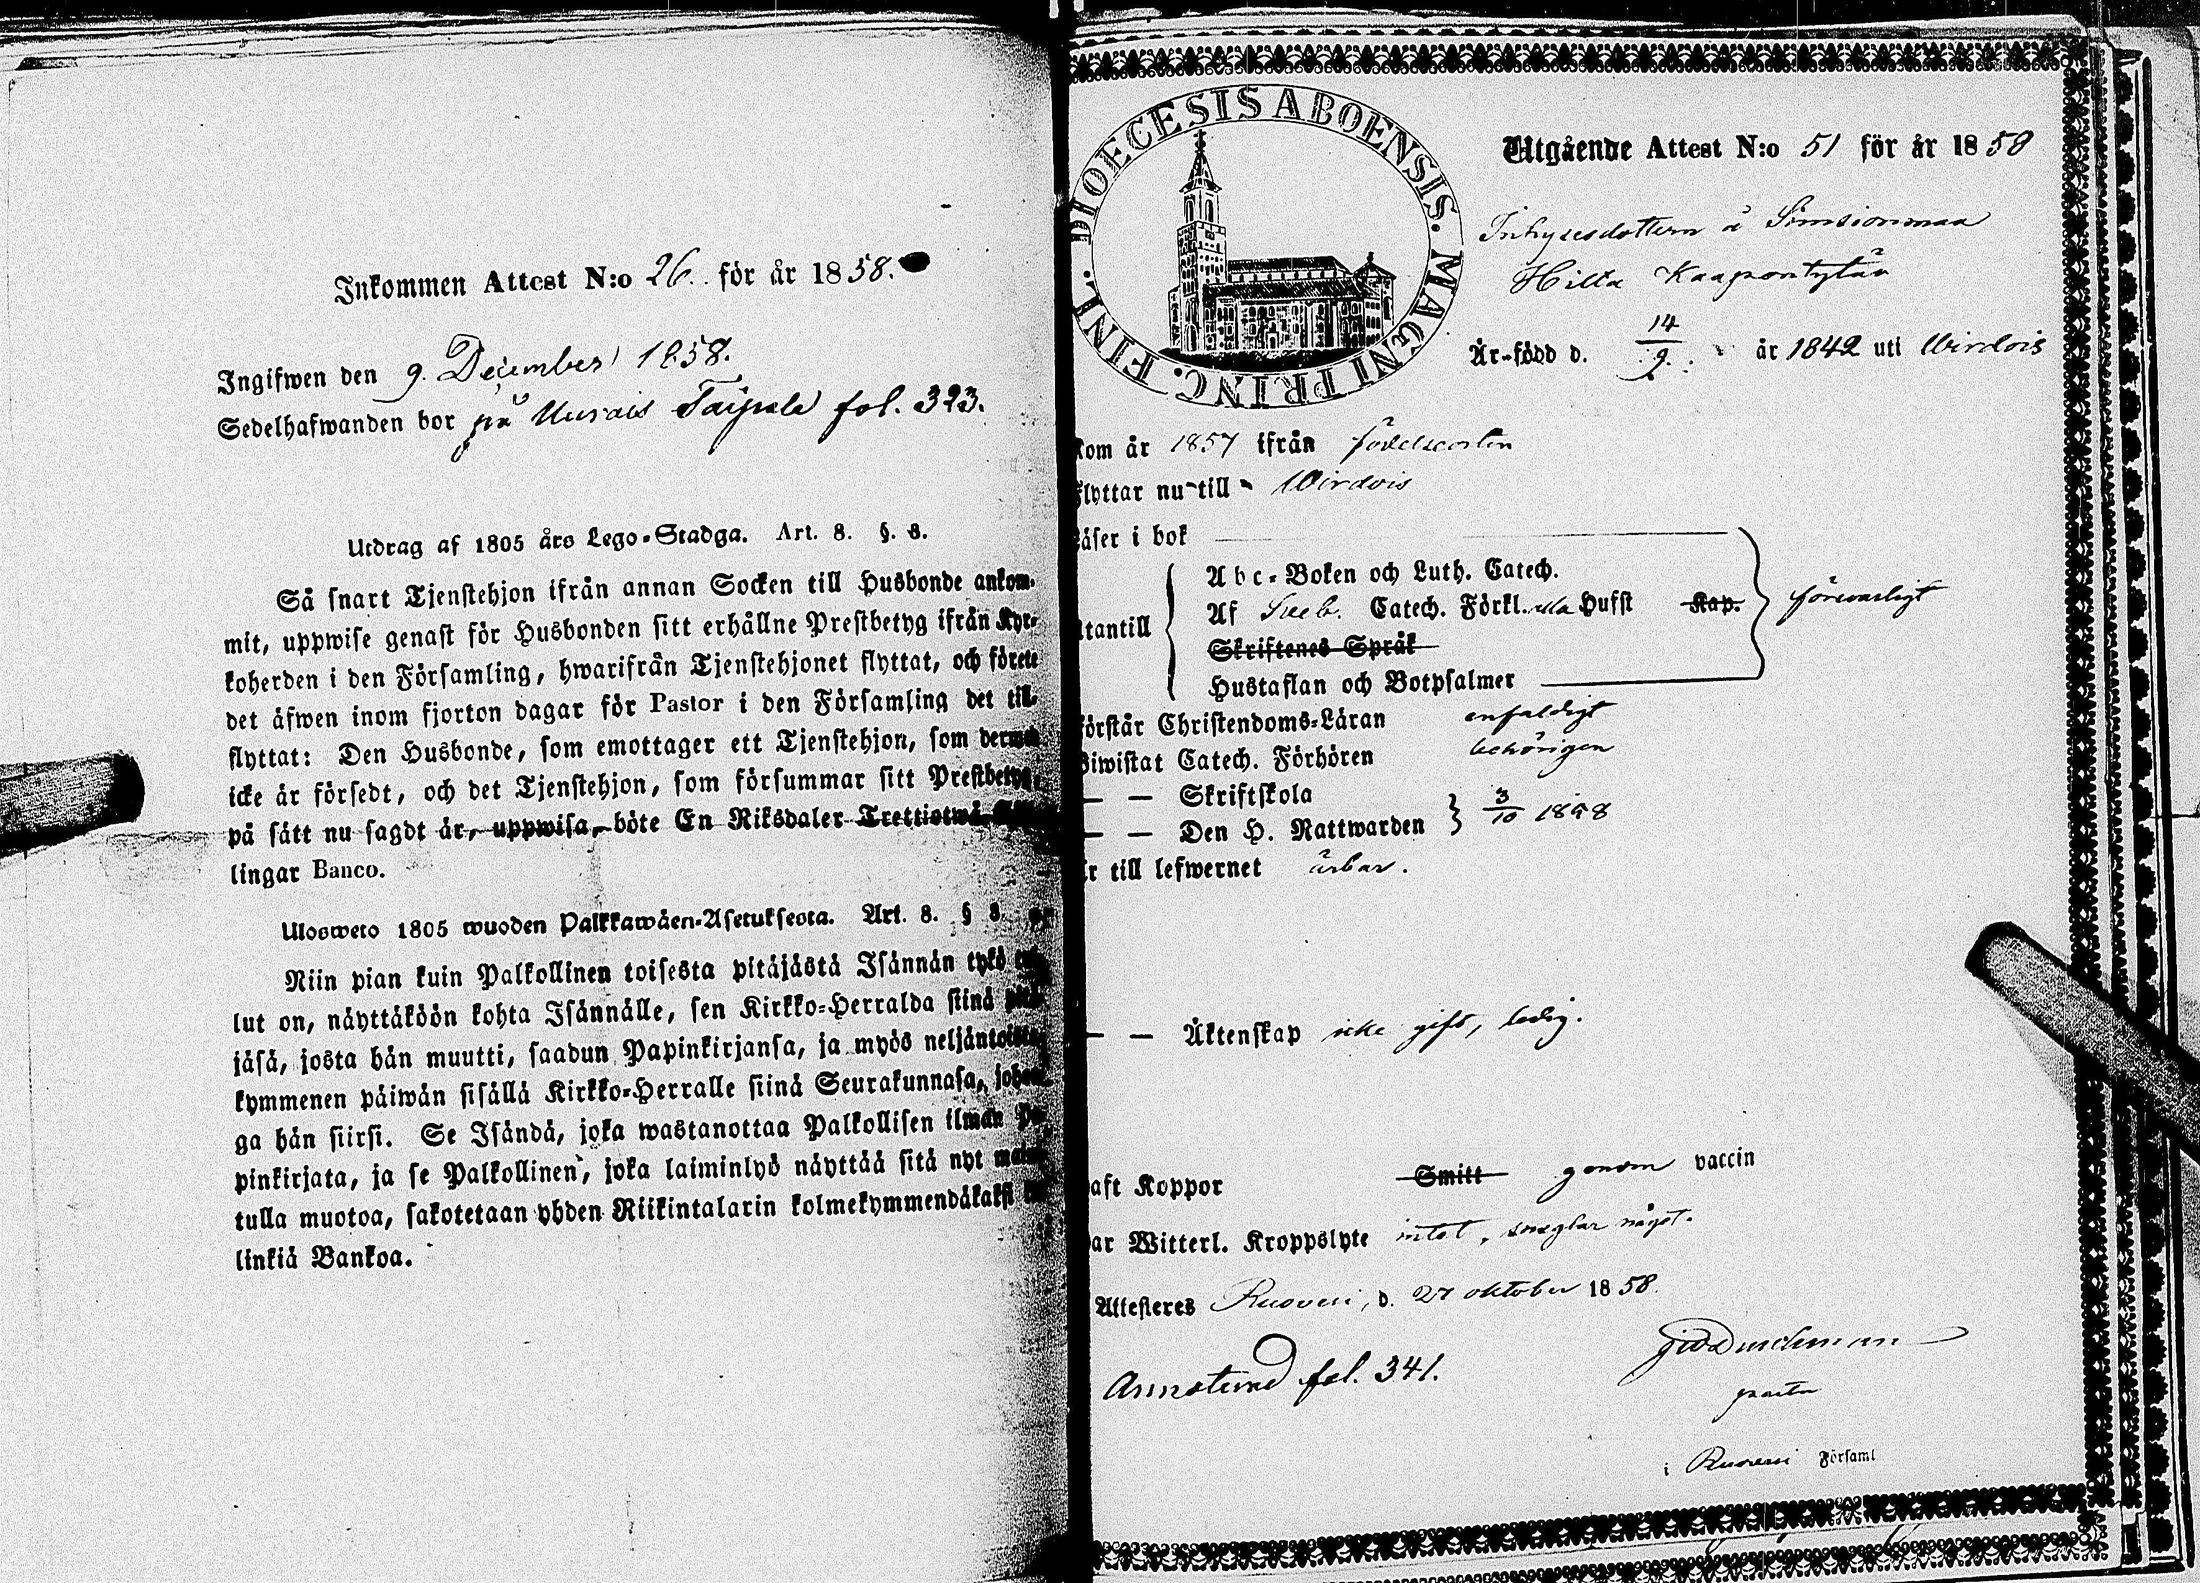 Inkommen Attest N:o 26. för år 1858.
Ingifwen den 9. December 1858.
Sedelhafwanden bor på Uurais Taipale fol. 323.
Utdrag af 1805 års Lego-Stadga. Art. 8. §. 8.
Så snart Tjenstehjon ifrån annan Socken till Husbonde ankom-
mit, uppwise genast för Husbonden sitt erhållne Prestbetyg ifrån Kyr-
koherden i den Församling, hwarifrån Tjenstehjonet flyttat, och förete
det äfwen inom fjorton dagar för Pastor i den Församling det till-
flyttat: Den Husbonde, som emottager ett Tjenstehjon, som dermed
icke är försedt, och det Tjenstehjon, som försummar sitt Prestbetyg,
på sätt nu sagdt är, uppwisa, böte En Riksdaler Trettiotwå
lingar Banco.
Ulosweto 1805 wuoden Palkkawäen-Asetuksesta. Art. 8. § 8.
Niin pian kuin Palkollinen toisesta pitäjästä Isännän tykö
lut on, näyttäköön kohta Isännälle, sen Kirkko-Herralda siinä
jäsä, josta hän muutti, saadun Papinkirjansa, ja myös neljäntoista
kymmenen päiwän sisällä Kirkko-Herralle siinä Seurakunnasa, johon-
ga hän siirsi. Se Isändä, joka wastanottaa Palkollisen ilman Pa-
pinkirjata, ja se Palkollinen, joka laiminlyö näyttää sitä nyt
tulla muotoa, sakotetaan yhden Riikintalarin kolmekymmendäkaksi
linkiä Bankoa.
DIOECESIS ABOENSIS. MAGNI PRINC. FINL.
Utgående Attest N:o 51 för år 1858
Inhysesdottern å Simsionmaa
Hilta Kaapontytär
Är född d. 14/9 år 1842 uti Wirdois
Kom år 1857 ifrån födelseorten
Flyttar nu till Wirdois
Läser i bok
Abc-Boken och Luth. Catech.
Af Sveb. Catech. Förkl. Hufst Kap. försvarligt
Utantill
Skriftenes Språk
Hustaflan och Botpsalmer
Förstår Christendoms-Läran enfaldigt
Biwistat Catech. Förhören behörigen
— — Skriftskola
— — Den H. Nattwarden 3/10 1858
Är till lefwernet ärbar.
— — Äktenskap icke gift, ledig.
Haft Koppor Smitt genom vaccin
Har Witterl. Kroppslyte intet, något.
Attesteres Ruovesi, d. 27 oktober 1858.
Annotered fol. 341.
i Ruovesi Församl